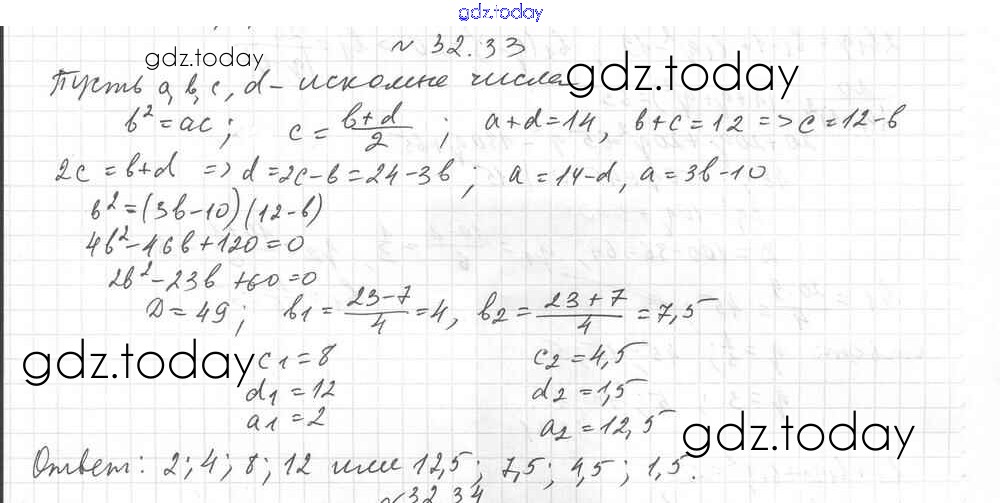 gdz.today
№ 32.33
gdz.today
gdz.today
Пусть a, b, c, d - искомые числа
b² = ac; c = (b+d)/2; a+d=14, b+c=12 => c=12-b
2c = b+d => d=2c-b=24-3b; a=14-d, a=3b-10
b²=(3b-10)(12-b)
4b²-46b+120=0
2b²-23b+60=0
D=49; b₁ = (23-7)/4 = 4, b₂ = (23+7)/4 = 7,5
gdz.today
c₁=8 c₂=4,5
d₁=12 d₂=1,5
a₁=2 a₂=12,5
gdz.today
Ответ: 2; 4; 8; 12 или 12,5; 7,5; 4,5; 1,5.
№32.34